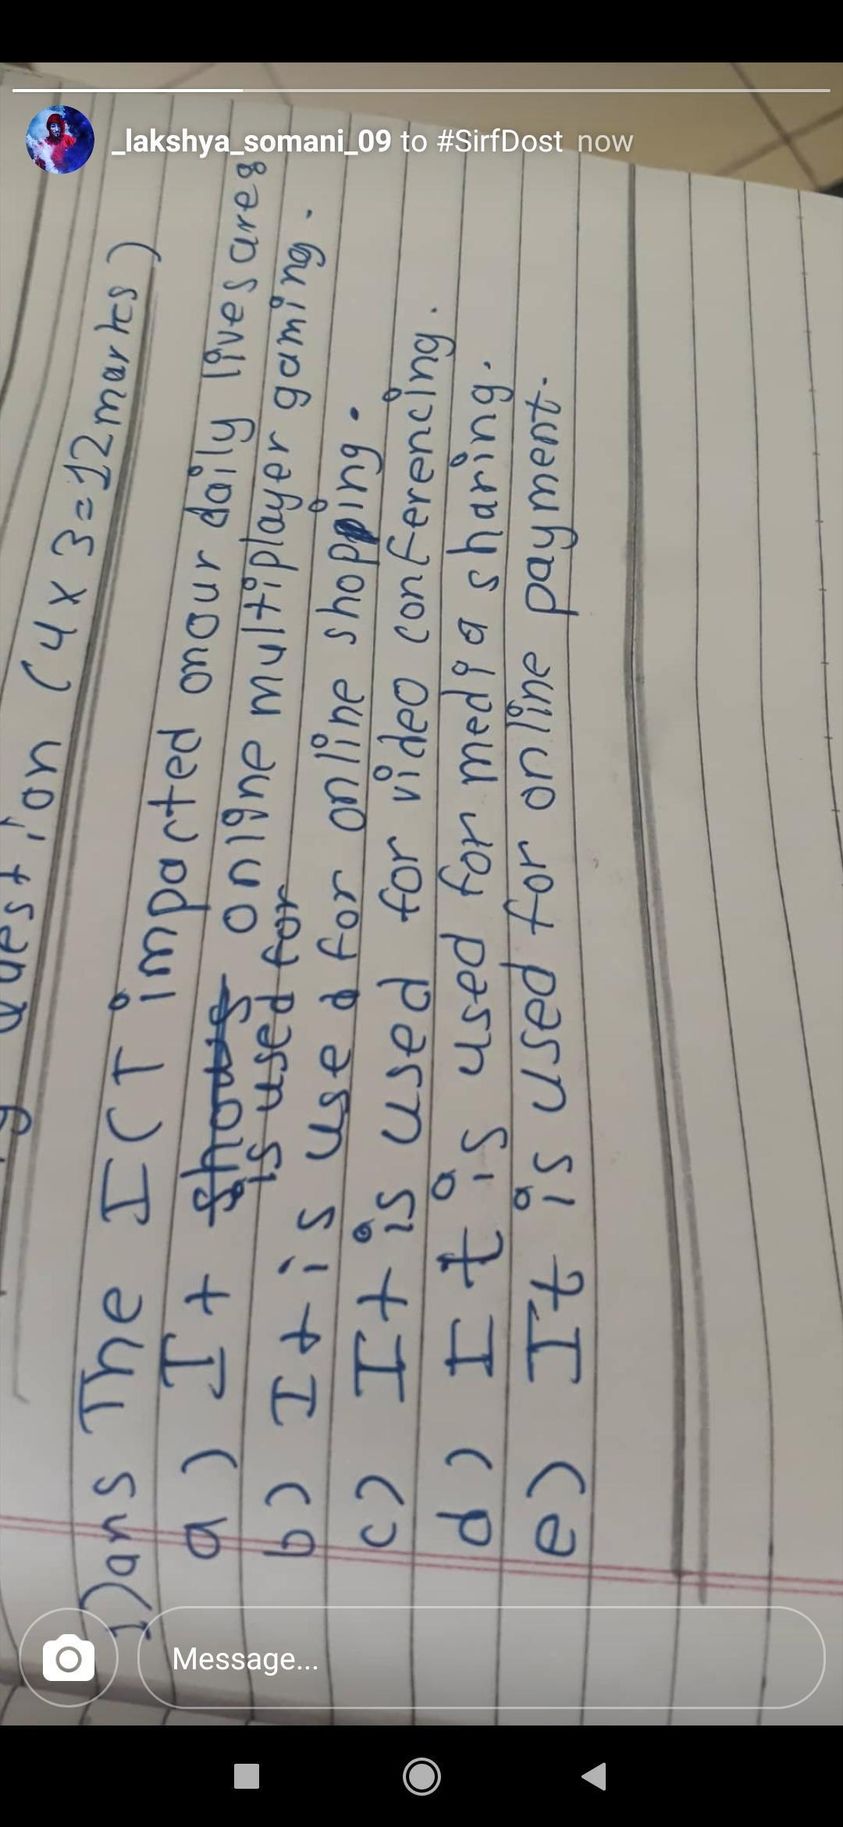 _lakshya_somani_09 to #SirfDost now
on (4 x 3 = 12 marks)
1) ans The ICT imparted on our daily lives are
a) It is used for online multiplayer gaming.
b) It is used for online shopping.
c) It is used for video conferencing.
d) It is used for media sharing.
e) It is used for online payment.
Message...